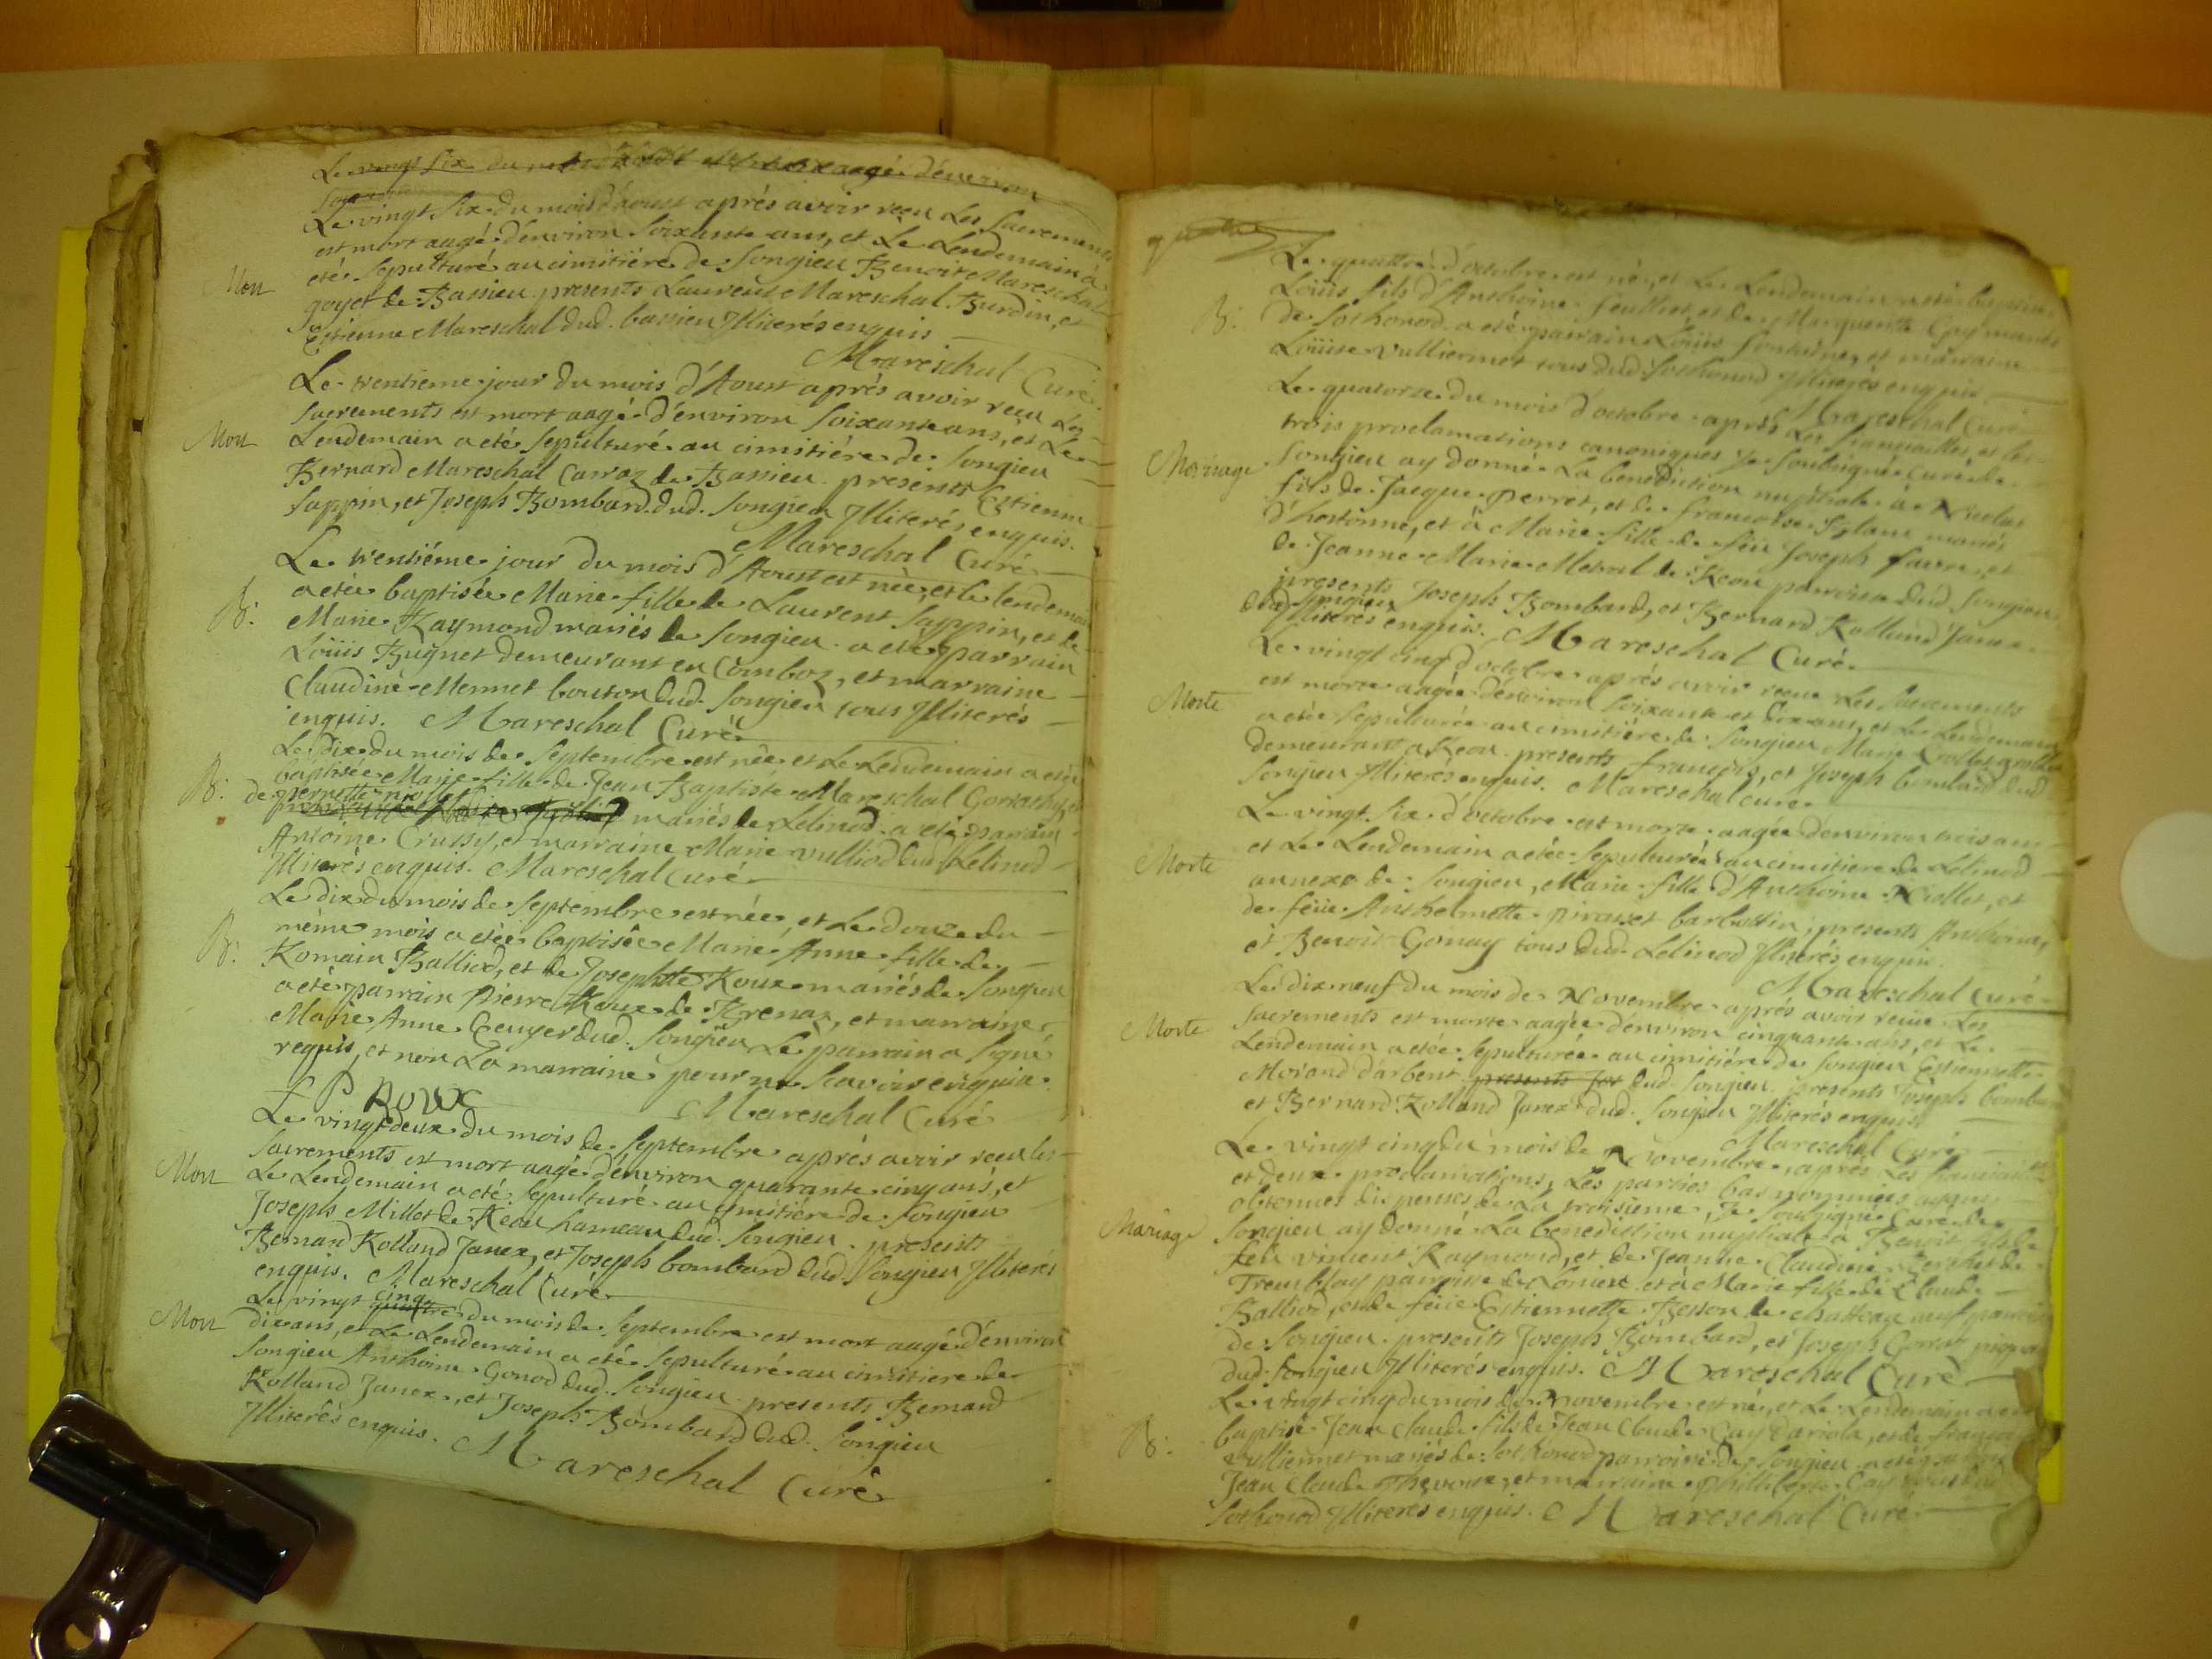 Le vingt six du mois d'aoust aagé d'environ
Le vingt six du mois d'aoust aprés avoir reçu les sacrements
est mort aagé d'environ soixante ans, et le lendemain à
eté sepulturé au cimitiére de songieu Benoit Mareschal
Mort
goyet de Bassieu. presents Laurent Mareschal Burdin, et
Estienne Mareschal dud. bassieu Illiterés enquis
Mareschal Curé.
Le trentieme jour du mois d'Aoust aprés avoir reçu les
sacrements est mort aagé d'environ soixante ans, et le
Mort
lendemain a eté sepulturé au cimitiére de songieu
Bernard Mareschal Carraz de Bassieu. presents Estienne
sappin, et Joseph Bombard dud. songieu Illiterés enquis.
Mareschal Curé
Le trentiéme jour du mois d'Aoust est née, et le lendemain
a etée baptisée Marie fille de Laurent sappin, et de
B:
Marie Raymond mariés de songieu. a eté parrain
Loüis Bugnet demeurant en Comboz, et marraine
Claudine Mennet bouton dud. songieu tous Illiterés
enquis. Mareschal Curé
Le dix du mois de septembre est née et le lendemain a etée
baptisée Marie fille de Jean Baptiste Mareschal Gorrathy, et
B:
de pernette niollet mariés de Lilinod. a eté parrain
Antoine Crussy, et marraine Marie vulliod dud Lilinod
Illiterés enquis. Mareschal Curé
Le dix du mois de septembre est née, et le douze du
même mois a etée baptisée Marie Anne fille de
B:
Romain Balliod, et de Josephte Roux mariés de songieu
a eté parrain pierre Roux de Brenaz, et marraine
Marie Anne Geuyer dud. songieu Le parrain a signé
requis, et non La marraine pour ne scavoir enquise.
P Roux
Mareschal Curé
Le vingt deux du mois de septembre aprés avoir reçu les
sacrements est mort aagé d'environ quarante cinq ans, et
Mort
Le Lendemain a eté sepulturé au cimitiére de songieu
Joseph Millet de Reou hameau dud. songieu. presents
Bernard Rolland Janex, et Joseph bombard dud songieu Illiterés
enquis. Mareschal Curé
Le vingt cinq quattre du mois de septembre est mort aagé d'environ
Mort
dix ans, et le Lendemain a eté sepulturé au cimitiere de
songieu Anthoine Gonod dud. songieu. presents Bernard
Rolland Janex, et Joseph Bombard dud. songieu
Illiterés enquis.
Mareschal Curé
Le quattre d'octobre est né, et le Lendemain a eté baptisé
Loüis fils d'Anthoine feulliet, et de Marguerite Gay mariés
B:
de sothonod. a eté parrain Loüis fontaine, et marraine
Loüise vulliermet tous dud. sothonod Illiterés enquis
Mareschal Curé
Le quatorze du mois d'octobre aprés les fiançailles, et les
trois proclamations canoniques je soubsigné Curé de
Mariage
songieu ay donné La benediction nuptiale à Nicolas
fils de Jacque perret, et de françoise mariés
d'hostonne, et à Marie fille de feu Joseph favre, et
de Jeanne Marie Metral de Reou parroisse dud songieu
presents Joseph Bombard, et Bernard Rolland Janex
dud. songieu
Illiterés enquis. Mareschal Curé
Le vingt cinq d'octobre aprés avoir reçue Les sacrements
est morte aagée d'environ soixante et dix ans, et Le Lendemain
Morte
a etée sepulturée au cimitiére de songieu Marie
demeurant a Reou. presents françois, et Joseph bombard dud
songieu Illiterés enquis. Mareschal curé
Le vingt six d'octobre est morte aagée d'environ trois ans
et Le Lendemain a etée sepulturée au cimitiere de Lilinod
Morte
annexe de songieu, Marie fille d'Anthoine Niollet, et
de feüe Anthelmette pirasset barbettin, presents Anthoine,
et Benoit Gonay tous dud. Lilinod Illiterés enquis.
Mareschal Curé
Le dix neuf du mois de Novembre aprés avoir reçue Les
sacrements est morte aagée d'environ cinquante ans, et Le
Morte
Lendemain a etée sepulturée au cimitiére de songieu Estiennette
Morand d'arbent presents Jos dud songieu. presents Joseph bombard
et Bernard Rolland Janex dud. songieu Illiterés enquis
Mareschal Curé
Le vingt cinq du mois de Novembre, aprés Les fiançailles
et deux proclamations, Les parties bas nommées ayant
obtenues dispenses de La troisieme, Je soubsigné Curé de
Mariage
songieu ay donné La benediction nuptiale à Benoit fils de
feu vincent Raymond, et de Jeanne Claudine Berthet de
Tremblay parroisse de et à Marie fille de Claude
Balliod, et de feüe Estiennette Besson de chatteau neuf parroisse
de songieu. presents Joseph Bombard, et Joseph Gorrat
dud. songieu Illiterés enquis. Mareschal Curé
Le vingt cinq du mois de Novembre est né, et Le Lendemain a eté
B:
baptisé Jean Claude fils de Jean Claude Cay dariola, et de françoise
vulliermet mariés de sothonod parroisse de songieu. a eté parrain
Jean Claude Thevoux, et marraine philliberte Cay dud
sothonod Illiterés enquis. Mareschal Curé